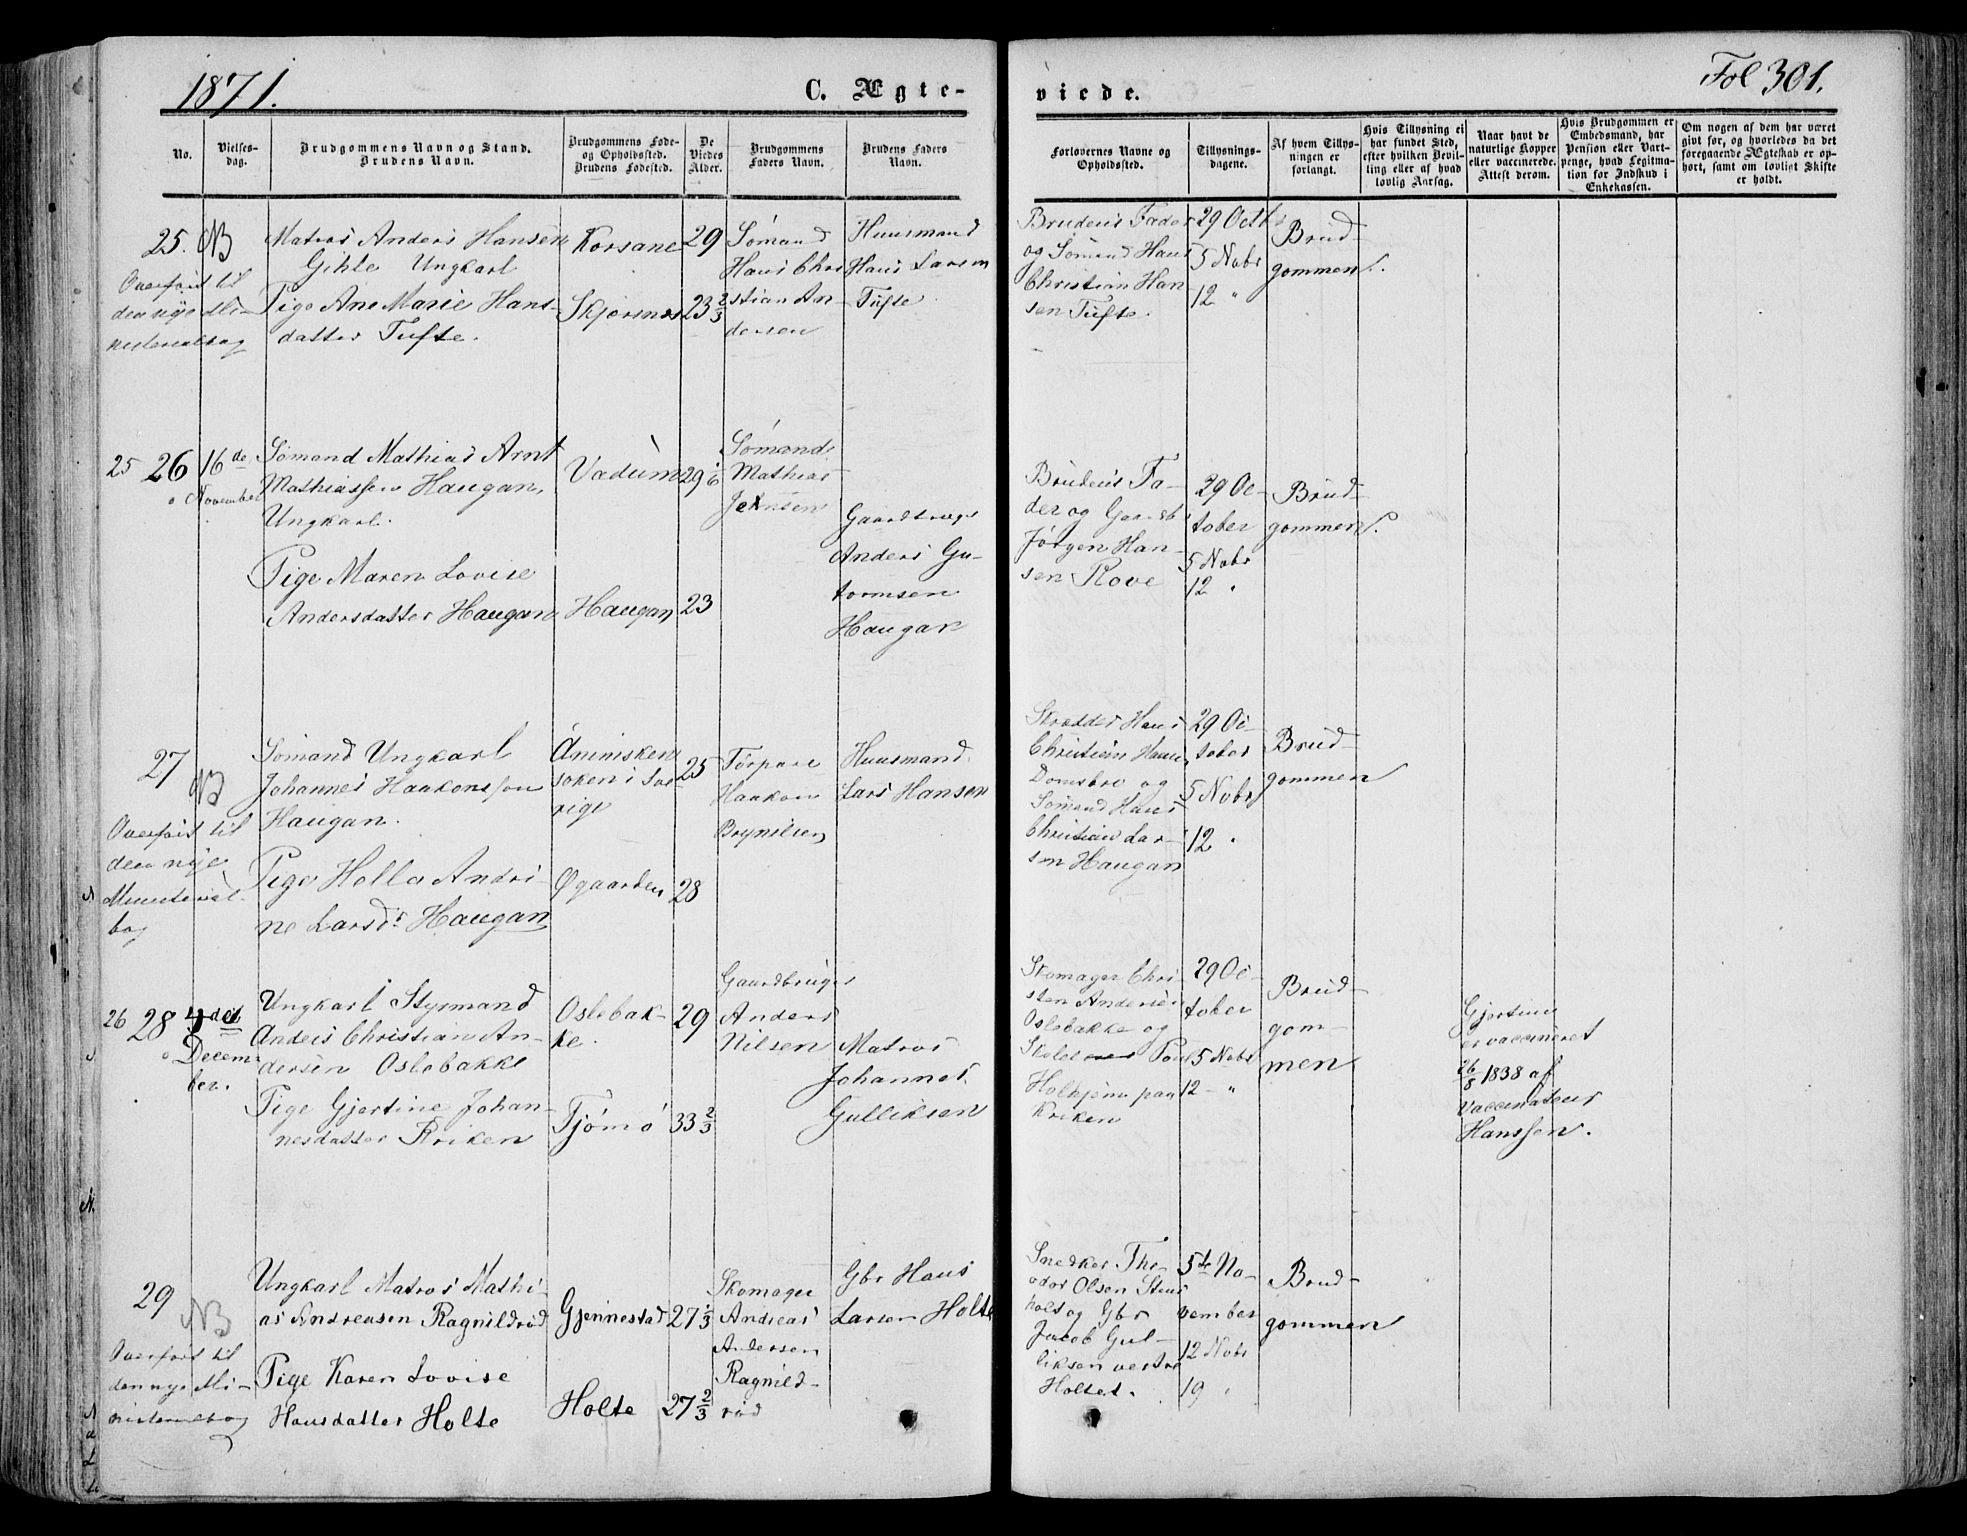 1871.
C. Ægte-
viede.
Fol 301.
No.
Vielses-
dag.
Brudgommens Navn og Stand.
Brudens Navn.
Brudgommens Føde-
og Opholdssted.
Brudens Fødested.
De
Viedes
Alder.
Brudgommens
Faders Navn.
Brudens Faders
Navn.
Forlovernes Navne og
Opholdssted.
Tillysnings-
dagene.
Af hvem Tillys-
ningen er
forlangt.
Hvis Tillysning ei
har fundet Sted,
efter hvilken Bevil-
ling eller af hvad
lovlig Aarsag.
Naar havt de
naturlige Kopper
eller vaccinerede.
Attest derom.
Hvis Brudgommen er
Embedsmand, har
Pension eller Vart-
penge, hvad Legitma-
tion for Indskud i
Enkekassen.
Om nogen af dem har været
givt før, og hvorledes da det
foregaaende Ægteskab er op-
hørt, samt om lovligt Skifte
er holdt.
25. NB
Overført til
den nye Mi-
nisterialbog
Matros Anders Hansen
Gihle Ungkarl
Pige Ane Marie Hans-
datter Tufte.
Korsane
Skjørsnes
29
23 2/3
Sømand
Hans Chri
stian An-
dersen
Huusmand
Hans Larsen
Tufte
Brudens Fader
og Sømand Hans
Christian Han-
sen Tufte.
29 Octbr
5 Nobr
12 "
Brud-
gommen.
25 26
16de
November
Sømand Mathias Arnt
Mathiassen Haugan,
Ungkarl.
Pige Maren Lovise
Andersdatter Haugan
Vadum
Haugan
29 1/6
23
Sømand
Mathias
Jensen
Gaardbruger
Anders Gu-
tormsen
Haugan
Brudens Fa-
der og Gaardb
Jørgen Han-
sen Rove
29 Oc-
tober
5 Nobr
12 "
Brud-
gommen.
27
NB
Overført til
den nye
Ministerial-
bog
Sømand Ungkarl
Johannes Haakonssen
Haugan.
Pige Hella Andri-
ne Larsdr Haugan
soken i Sve
rige
Øgaarden
25
28
Torpare
Haakon
Brynilsen
Huusmand
Lars Hansen
Skrædder Hans
Christian Hansen
og
Sømand Hans
Christian Lar-
sen Haugan
29 Oc-
tober
5 Nobr
12 "
Brud-
gommen
26 28
4de
Decem-
ber.
Ungkarl Styrmand
Anders Christian An-
dersen Oslebakke
Pige Gjertine Johan-
nesdatter Kriken
Oslebak-
ke.
Tjømø
29
33 2/3
Gaardbruger
Anders
Nilsen
Matros
Johannes
Gulliksen
Skomager Chri-
sten Andersen
Oslebakke og
Poul
Holkjønn paa
Kriken
29 Oc-
tober
5 Nobr
12 - "
Brud-
gom-
men
Gjertine
er vaccineret
26/8 1838 af
Vaccinateur
Hanssen.
29
NB
Overført til
den nye Mi-
nisterialbog
Ungkarl Matros Mathi-
as Andreasen Ragnildrød
Pige Karen Lovise
Hansdatter Holte
Gjennestad
Holte
27 1/3
27 2/3
Skomager
Andreas
Andersen
Ragnild-
rød
Gbr Hans
Larsen Holte
Snedker The-
odor Olsen Steins
holt og Gbr
Jacob Gul-
liksen vestre
Holtet.
5te No-
vember
12 Nobr
19 "
Brud-
gommen